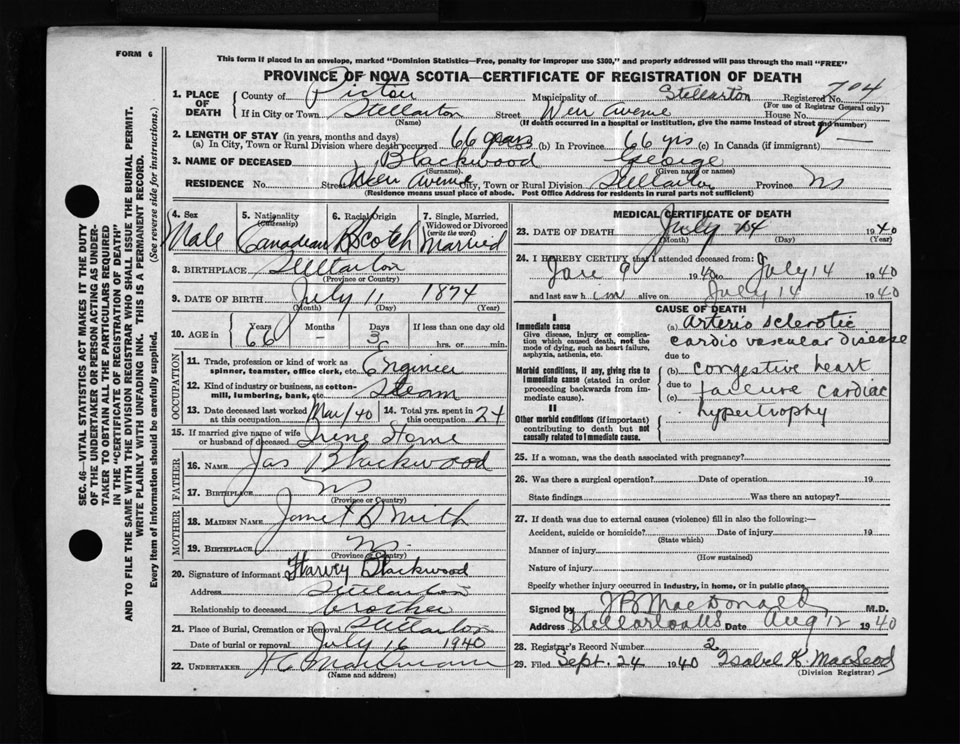 FORM 6
This form if placed in an envelope, marked "Dominion Statistics—Free, penalty for improper use $300," and properly addressed will pass through the mail "FREE"
PROVINCE OF NOVA SCOTIA—CERTIFICATE OF REGISTRATION OF DEATH
SEC. 46—VITAL STATISTICS ACT MAKES IT THE DUTY
OF THE UNDERTAKER OR PERSON ACTING AS UNDER-
TAKER TO OBTAIN ALL THE PARTICULARS REQUIRED
IN THE "CERTIFICATE OF REGISTRATION OF DEATH"
AND TO FILE THE SAME WITH THE DIVISION REGISTRAR WHO SHALL ISSUE THE BURIAL PERMIT.
WRITE PLAINLY WITH UNFADING INK. THIS IS A PERMANENT RECORD.
Every item of information should be carefully supplied. (See reverse side for instructions.)
1. PLACE OF DEATH County of Pictou Municipality of Stellarton Registered No. 704
(For use of Registrar General only)
If in City or Town Stellarton Street Weir Avenue House No.
(Name) (If death occurred in a hospital or institution, give the name instead of street and number)
2. LENGTH OF STAY (in years, months and days)
(a) In City, Town or Rural Division where death occurred 66 years (b) In Province 66 yrs (c) In Canada (if immigrant) —
3. NAME OF DECEASED Blackwood George
(Surname). (Given name or names)
RESIDENCE No. Street Weir Avenue City, Town or Rural Division Stellarton Province NS
(Residence means usual place of abode. Post Office Address for residents in rural parts not sufficient)
4. Sex Male
5. Nationality (Citizenship) Canadian
6. Racial Origin Scotch
7. Single, Married, Widowed or Divorced (write the word) Married
8. BIRTHPLACE Stellarton
9. DATE OF BIRTH July 11 1874
(Month) (Day) (Year)
10. AGE in Years 66 Months — Days 3 If less than one day old hrs. or min.
OCCUPATION
11. Trade, profession or kind of work as spinner, teamster, office clerk, etc. Engineer
12. Kind of industry or business, as cotton-mill, lumbering, bank, etc. Steam
13. Date deceased last worked at this occupation Mar/40 14. Total yrs. spent in this occupation 24
15. If married give name of wife or husband of deceased Irene Horne
FATHER
16. NAME Jas Blackwood
17. BIRTHPLACE NS
(Province or Country)
MOTHER
18. MAIDEN NAME Janet Smith
19. BIRTHPLACE NS
(Province or Country)
20. Signature of informant Harvey Blackwood
Address Stellarton
Relationship to deceased brother
21. Place of Burial, Cremation or Removal Stellarton
Date of burial or removal July 16 1940
22. UNDERTAKER
(Name and address)
MEDICAL CERTIFICATE OF DEATH
23. DATE OF DEATH July 14 1940
(Month) (Day) (Year)
24. I HEREBY CERTIFY that I attended deceased from: 1940 to July 14 1940
and last saw him alive on July 14 1940
I
Immediate cause
Give disease, injury or complication which caused death, not the mode of dying, such as heart failure, asphyxia, asthenia, etc.
Morbid conditions, if any, giving rise to immediate cause (stated in order proceeding backwards from immediate cause).
II
Other morbid conditions (if important) contributing to death but not causally related to immediate cause.
CAUSE OF DEATH
(a) Arterio sclerotic
cardio vascular disease
due to
(b) congestive heart
due to failure cardiac
(c) hypertrophy
25. If a woman, was the death associated with pregnancy?
26. Was there a surgical operation? Date of operation 19
State findings Was there an autopsy?
27. If death was due to external causes (violence) fill in also the following:—
Accident, suicide or homicide? Date of injury 19
(State which)
Manner of injury
(How sustained)
Nature of injury
Specify whether injury occurred in industry, in home, or in public place
Signed by J B MacDonald M.D.
Address Stellarton NS Date Aug 12 1940
28. Registrar's Record Number 2
29. Filed Sept. 24 1940 Isabel K. MacLeod
(Division Registrar)